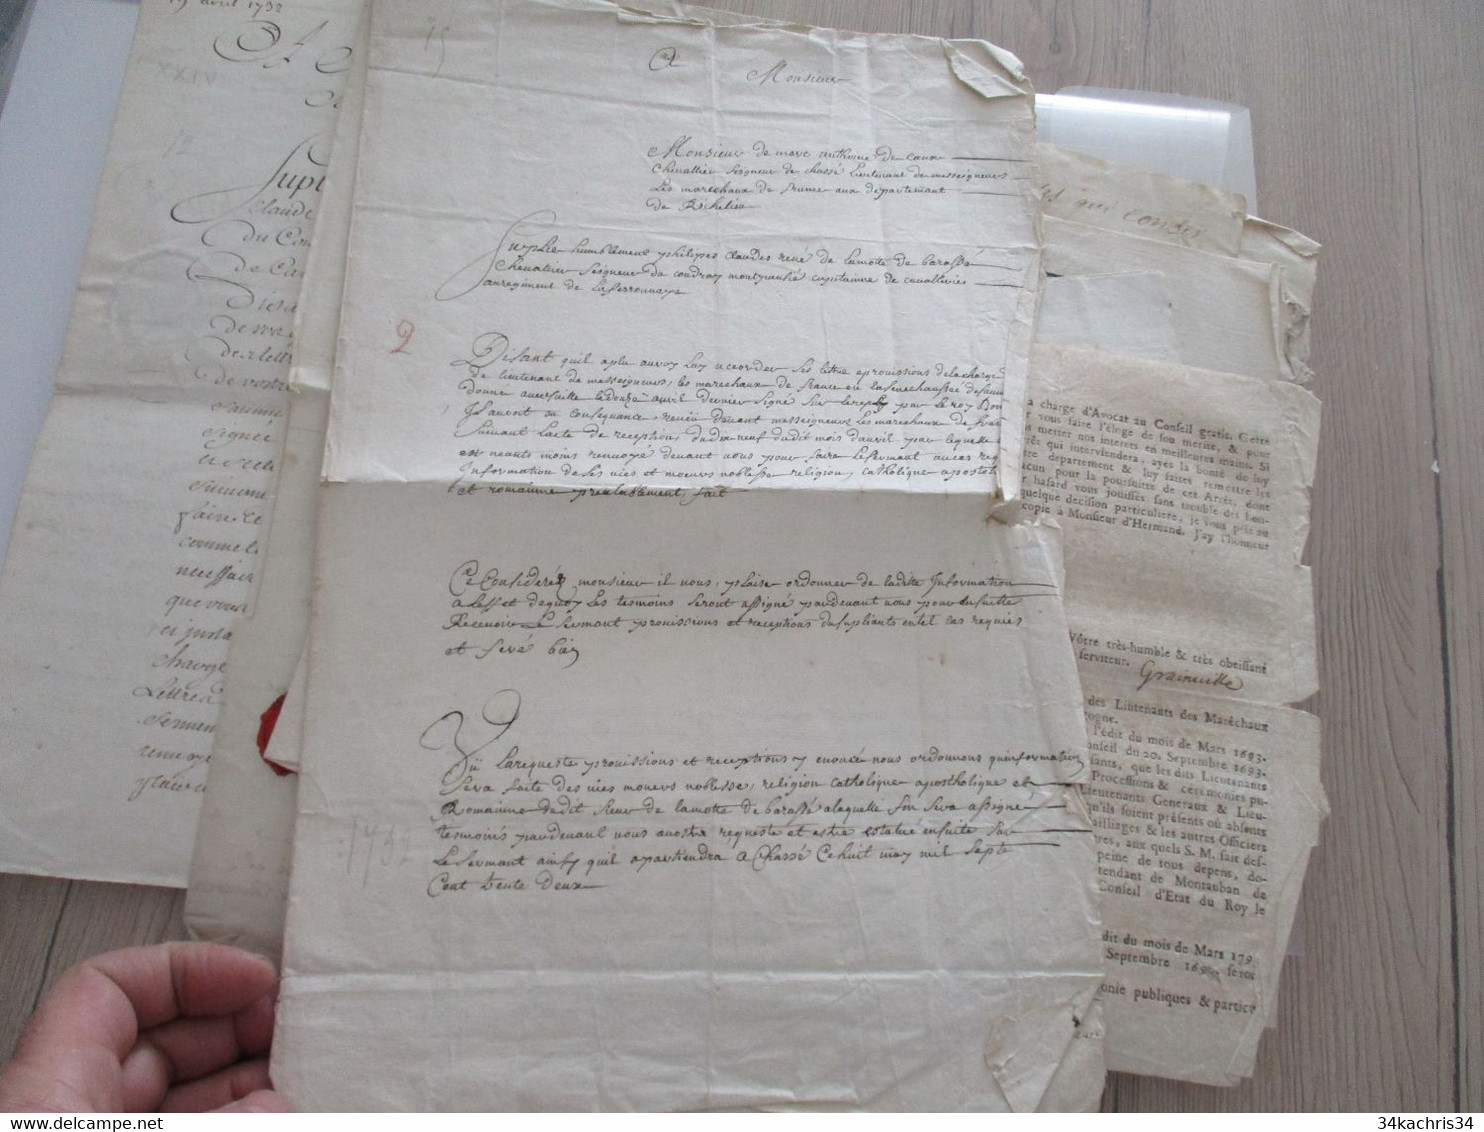 19 avril 1732
A
XXIV
12
Supl
Claude
du Con
De Ca
Disa
de vostre
signée
suivant
faire le
comme le
necessair
que vous
ci justa
charge
Lettres d
sermen
renvoye
15
A
Monsieur
Monsieur de marc anthoine de caux
Chevallier seigneur de chassé Lieutenant de messeigneurs
Les marechaux de France aux departement
de Richelieu
Suplie humblement philipes claudes rené de lamotte de barassé
Chevallier Seigneur du coudray montpansié capitainne de cavalleries
auregiment de La ferronnays
2
Disant quil aplu auroy Luy accorder ses lettre eprovissions dela charge
de lieutenant de messeigneurs, les marechaux de france en la senechaussée de saum
donné aversaille le douze avril dernier signé sur lereply par le roy Bon
Il auroit en consequance, receu devant messeigneurs Les marechaux de fran
suivant Lacte de reception, dudix neuf dudit mois d'avril par lequelle
est neants moins renvoyé devant vous pour faire le serment aucas req
Information de ses vies et moeurs noblesse religion, catholique apostol
et romainne prealablement, fait
Ce Consideré monsieur il vous, plaise ordonner de ladite Information
a Lesfet dequoy Les tesmoins seront assigné pardevant vous pour ensuitte
Recevoir Le serment provissions et receptions du supliants entel cas requies
et feré bien
Vü La requeste provissions et receptions y enoncé nous ordonnons quinformation
sera faite des vies moeurs noblesse, religion catholique apostholique et
Romainne dudit sieur de lamotte de barassé alaquelle fin sera assigne
tesmoins pardevant nous anostre requeste et estre estatué ensuite sur
Le serment ainsy quil apartiendra A Chassé Ce huit may mil sept
Cent trente deux
1732
les qui concer
a charge d'Avocat au Conseil gratis. Cette
r vous faire l'éloge de son merite, & pour
s mettre nos interests en meilleures mains. Si
rêt qui interviendera, ayes la bonté de luy
tre departement & luy faites remettre les
acun pour la poursuitte de cet Arrêt, dont
r hasard vous jouissés sans trouble des hon-
quelque decision particuliere, je vous prie au
copie à Monsieur d'Hermand. J'ay l'honneur
Vôtre très-humble & très obeissant
serviteur. Grainville
des Lieutenants des Maréchaux
ogne.
l'édit du mois de Mars 1693.
onseil du 20. Septembre 1693.
fants, que les dits Lieutenants
Processions & ceremonies pu-
Lieutenants Generaux & Lieu-
qu'ils soient présents où absents
ailliages & les autres Officiers
res, aux quels S. M. fait def-
peine de tous depens, do-
tendant de Montauban de
Conseil d'Etat du Roy le
dit du mois de Mars 179
Septembre 169 seron
onie publiques & particu
34kachris34